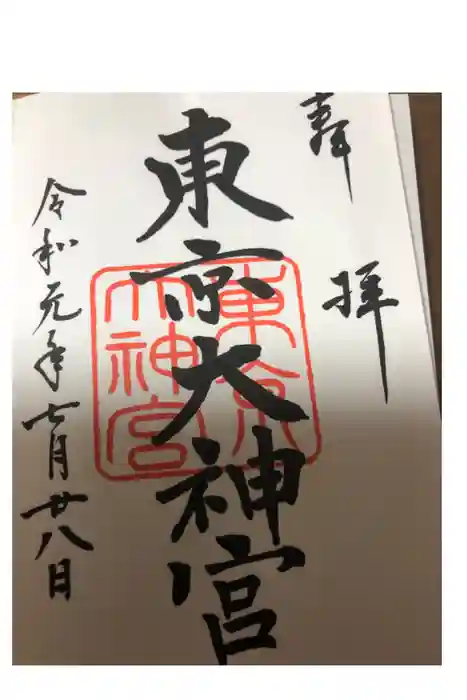 奉拝
東京大神宮
東京大神宮
令和元年七月廿八日